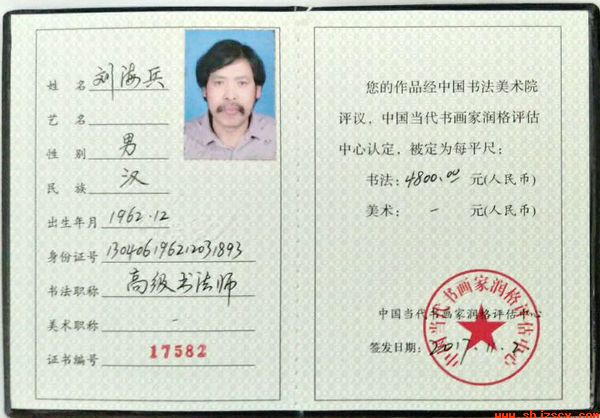 姓 名 刘海兵
艺 名
性 别 男
民 族 汉
出生年月 1962.12
身份证号 130406196212031893
书法职称 高级书法师
美术职称 -
证书编号 17582
您的作品经中国书法美术院
评议，中国当代书画家润格评估
中心认定，被定为每平尺：
书法：4800.00 元(人民币)
美术： - 元(人民币)
中国当代书画家润格评估中心
中国当代书画家润格评估中心
签发日期：2017.11.2
www.shjzscx.com